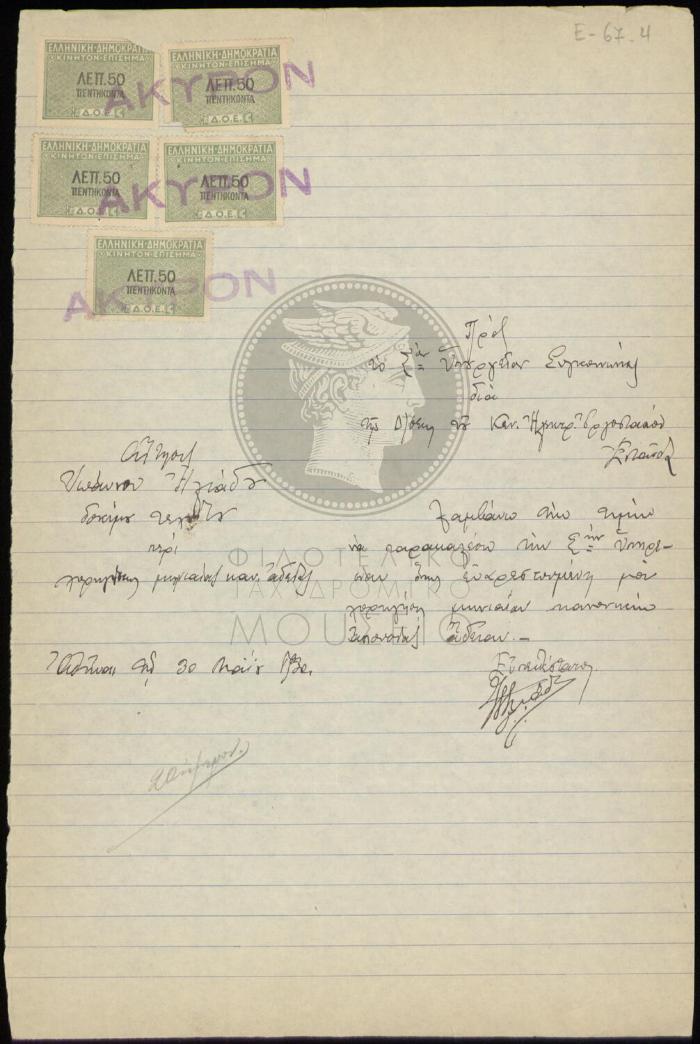 Ε-67-4
ΕΛΛΗΝΙΚΗ·ΔΗΜΟΚΡΑΤΙΑ
ΚΙΝΗΤΟΝ·ΕΠΙΣΗΜΑ
ΛΕΠ.50
ΠΕΝΤΗΚΟΝΤΑ
Δ.Ο.Ε
ΕΛΛΗΝΙΚΗ·ΔΗΜΟΚΡΑΤΙΑ
ΚΙΝΗΤΟΝ·ΕΠΙΣΗΜΑ
ΛΕΠ.50
ΠΕΝΤΗΚΟΝΤΑ
Δ.Ο.Ε
ΑΚΥΡΟΝ
ΕΛΛΗΝΙΚΗ·ΔΗΜΟΚΡΑΤΙΑ
ΚΙΝΗΤΟΝ·ΕΠΙΣΗΜΑ
ΛΕΠ.50
ΠΕΝΤΗΚΟΝΤΑ
Δ.Ο.Ε
ΕΛΛΗΝΙΚΗ·ΔΗΜΟΚΡΑΤΙΑ
ΚΙΝΗΤΟΝ·ΕΠΙΣΗΜΑ
ΛΕΠ.50
ΠΕΝΤΗΚΟΝΤΑ
Δ.Ο.Ε
ΑΚΥΡΟΝ
ΕΛΛΗΝΙΚΗ·ΔΗΜΟΚΡΑΤΙΑ
ΚΙΝΗΤΟΝ·ΕΠΙΣΗΜΑ
ΛΕΠ.50
ΠΕΝΤΗΚΟΝΤΑ
Δ.Ο.Ε
ΑΚΥΡΟΝ
Πρός
τό Σ̲ὸν Ὑπουργεῖον Συγκοινωνίας
διά
τῆς Δ/σεως τοῦ Καν. Ἠλεκτρ. Ἐργοστασίου
Ἐνταῦθα
Αἴτησις
Ἰωάννου Ἠλιάδου
δοκίμου
περί
χορηγήσεως μηνιαίας καν. ἀδείας
Λαμβάνω τήν τιμήν
νά παρακαλέσω τήν Σ̲ὴν Ὑπηρε-
σίαν ὅπως εὐαρεστουμένη μοί
χορηγήση μηνιαίαν κανονικήν
ἀπουσίας ἄδειαν.—
Ἀθῆναι τῇ 30 Μαΐου
Εὐπειθέστατος
ΦΙΛΟΤΕΛΙΚΟ
ΤΑΧΥΔΡΟΜΙΚΟ
ΜΟΥΣΕΙΟ